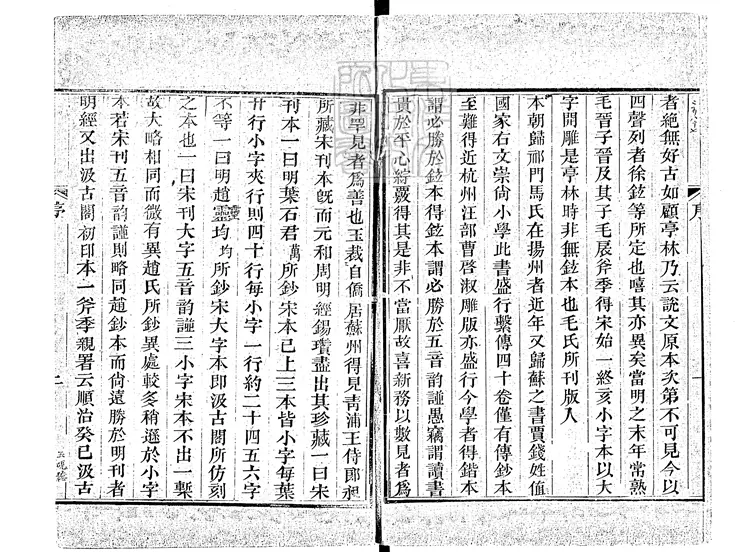 者絶無好古如顧亭林乃云説文原本次第不可見今以
四聲列者徐鉉等所定也嘻其亦異矣當明之末年常熟
毛晉子晉及其子毛扆斧季得宋始一終亥小字本以大
字開雕是亭林時非無鉉本也毛氏所刊版入
本朝歸祁門馬氏在揚州者近年又歸蘇之書賈錢姓值
國家右文崇尚小學此書盛行繫傳四十卷僅有傳鈔本
至難得近杭州汪部曹啓淑雕版亦盛行今學者得鍇本
謂必勝於鉉本得鉉本謂必勝於五音韵譜愚竊謂讀書
貴於平心綜覈得其是非不當厭故喜新務以數見者爲
非罕見者爲善也玉裁自僑居蘇州得見青浦王侍郎昶
所藏宋刊本既而元和周明經錫瓚盡出其珍藏一曰宋
刊本一曰明葉石君萬所鈔宋本已上三本皆小字每葉
廿行小字夾行則四十行每小字一行約二十四五六字
不等一曰明趙靈均均所鈔宋大字本即汲古閣所仿刻
之本也一曰宋刊大字五音韵譜三小字宋本不出一槧
故大略相同而微有異趙氏所鈔異處較多稍遜於小字
本若宋刊五音韵譜則略同趙鈔本而尚遠勝於明刊者
明經又出汲古閣初印本一斧季親署云順治癸巳汲古
序